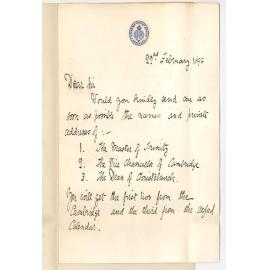 Dear Sir
Would you kindly send me as
soon as possible the names and private
addresses of :-
1. The Master of Trinity
2. The Vice Chancellor of Cambridge
3. The Dean of Christchurch.
You will get the first two from the
Cambridge and the third from the Oxford
Calendar.